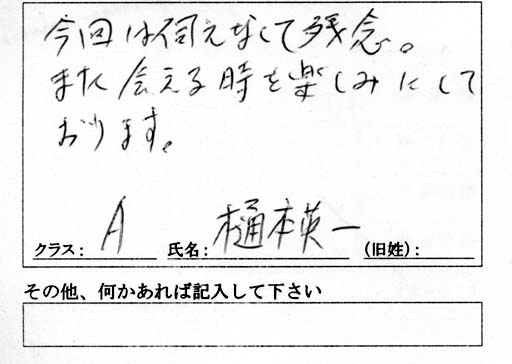 今回は伺えなくて残念。
また会える時を楽しみにして
おります。
クラス: A 氏名: 樋本英一 (旧姓):
その他、何かあれば記入して下さい